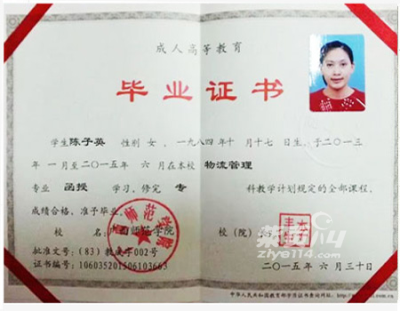 成人高等教育
毕业证书
学生 陈子英 性别 女、一九八四年十月十七日生、于二〇一三
年 一月至二〇一五年 六月在本校 物流管理
专业 函授 学习、修完 专 科教学计划规定的全部课程、
成绩合格、准予毕业。
师范学院
校（院）长：
批准文号：（83）教成字002号
证书编号：106035201506103663
二〇一五年 六月三十日
ziye114.com
中华人民共和国教育部学历证书查询网址：